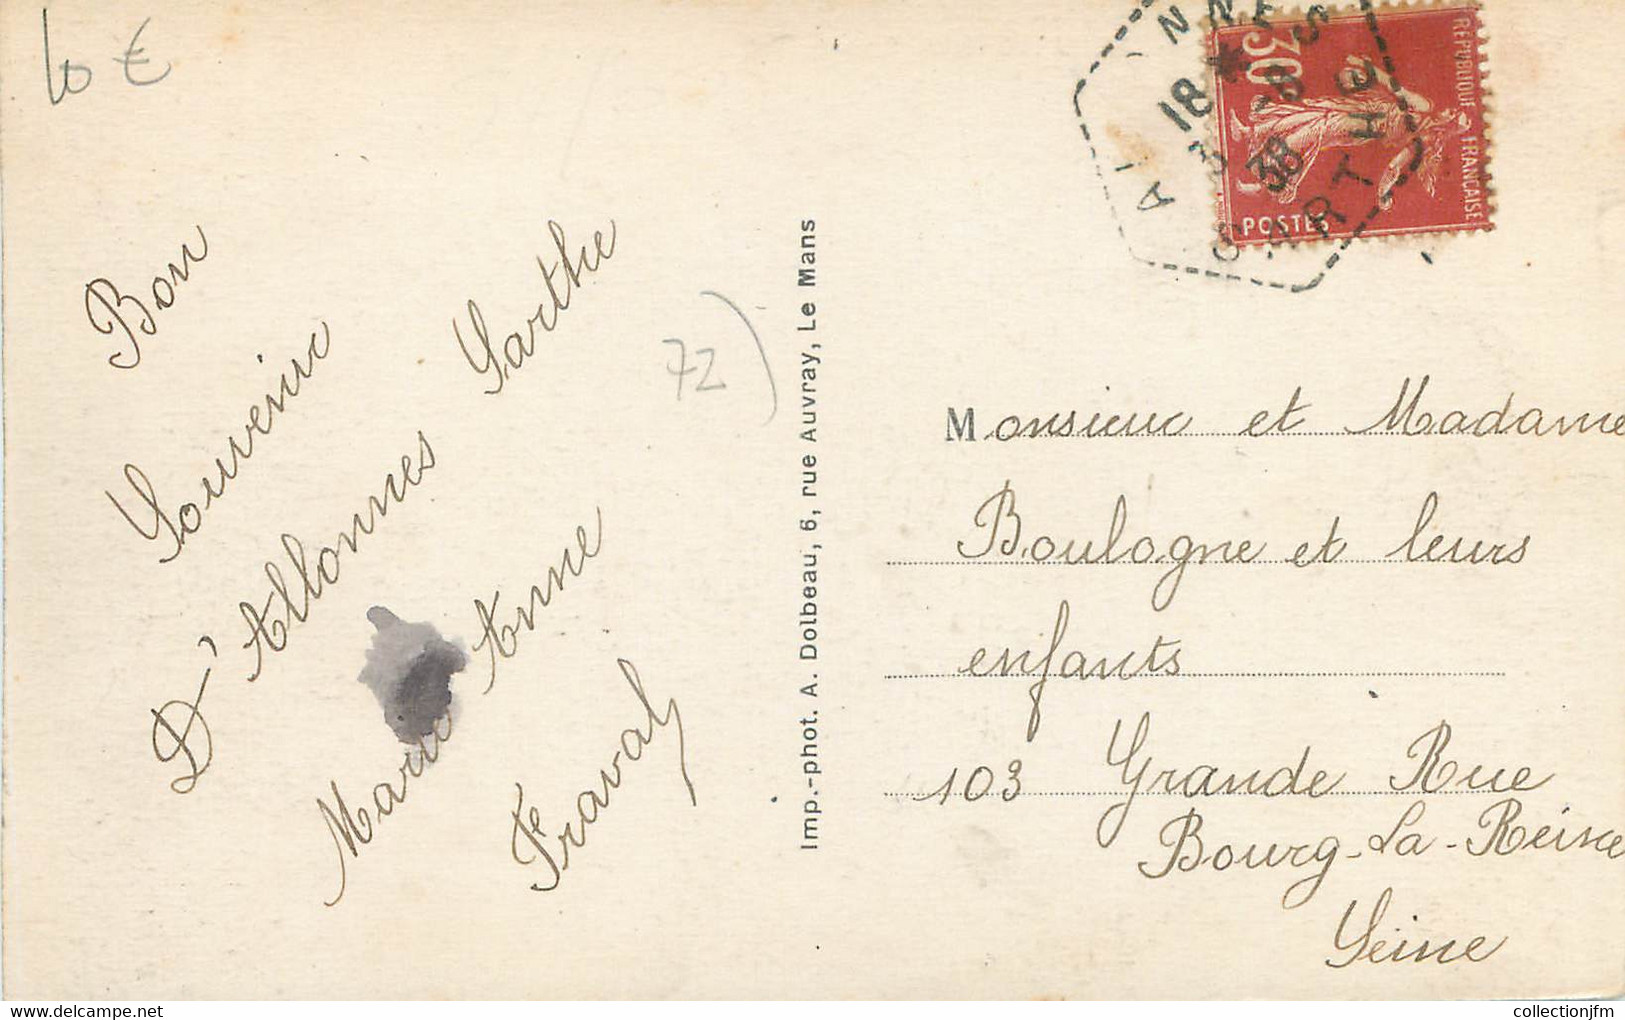 10 €
Bon
Souvenir
D'Allonnes Sarthe
Marie Anne
Fraval
72)
Imp.-phot. A. Dolbeau, 6, rue Auvray, Le Mans
18 *
38
SARTHE
30c
REPUBLIQUE FRANÇAISE
POSTES
Monsieur et Madame
Boulogne et leurs
enfants
103 Grande Rue
Bourg-La-Reine
Seine
collectionjfm